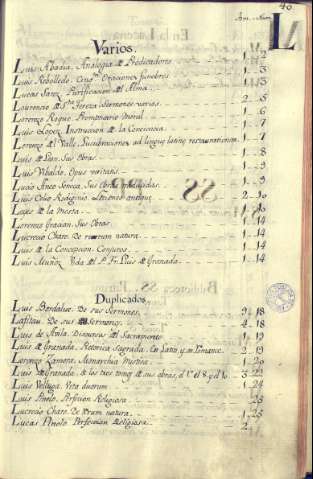 40
Am. Num.
L
Varios.
Luis Abadia, Analogia de Predicadores 1..3
Luis Rebolledo. Oraciones funebres 1..3
Lucas Sanz. Purificacion del Alma 1..5
Laurencio de Sta. Tereza Sermones varios 2..6
Lorenzo Roque. Promptuario Moral 1..6
Luis Lopez, Instrucion de la Conciencia 1..7
Lorenzo del Valle, lucubraciones ad linguæ latinæ restaurationem 1..8
Luis de Leon, Sus Obras 1..
Luis Vibaldo. Opus veritatis 1..
Lucio Aneo Seneca, Sus Obras 1..
Luis Celio Rodiginio. antiquæ 2..10
Lope de la Mesta 1..
Lorenzo Gracian. Sus Obras 1..14
Lucrecio Charo. De rerum natura 1..14
Luis de la Concepcion. Conjuros 1..14
Luis Muñoz Vida del P. Fr. Luis de Granada 1..14
Duplicados.
Luis Bordalue. De sus Sermones 9..18
Lafitau. De sus Sermones 4..18
Luis de Avila. Discursos del Sacramento 1..19
Luis de Granada. Retorica Sagrada, En Latin, y en Romance 2..19
Lorenzo Zamora. Monarchia Mistica 1..20
Luis de Granada, de los tres tomos de sus obras, el 1. el 8. y el 6. 3..22
Luis Velluga. Vita duorum 1..24
Luis Pinelo. Perfecion Religiosa
Lucrecio Charo. De rerum natura. 1..25
Lucas Pinelo Perfecion Religiosa 2..